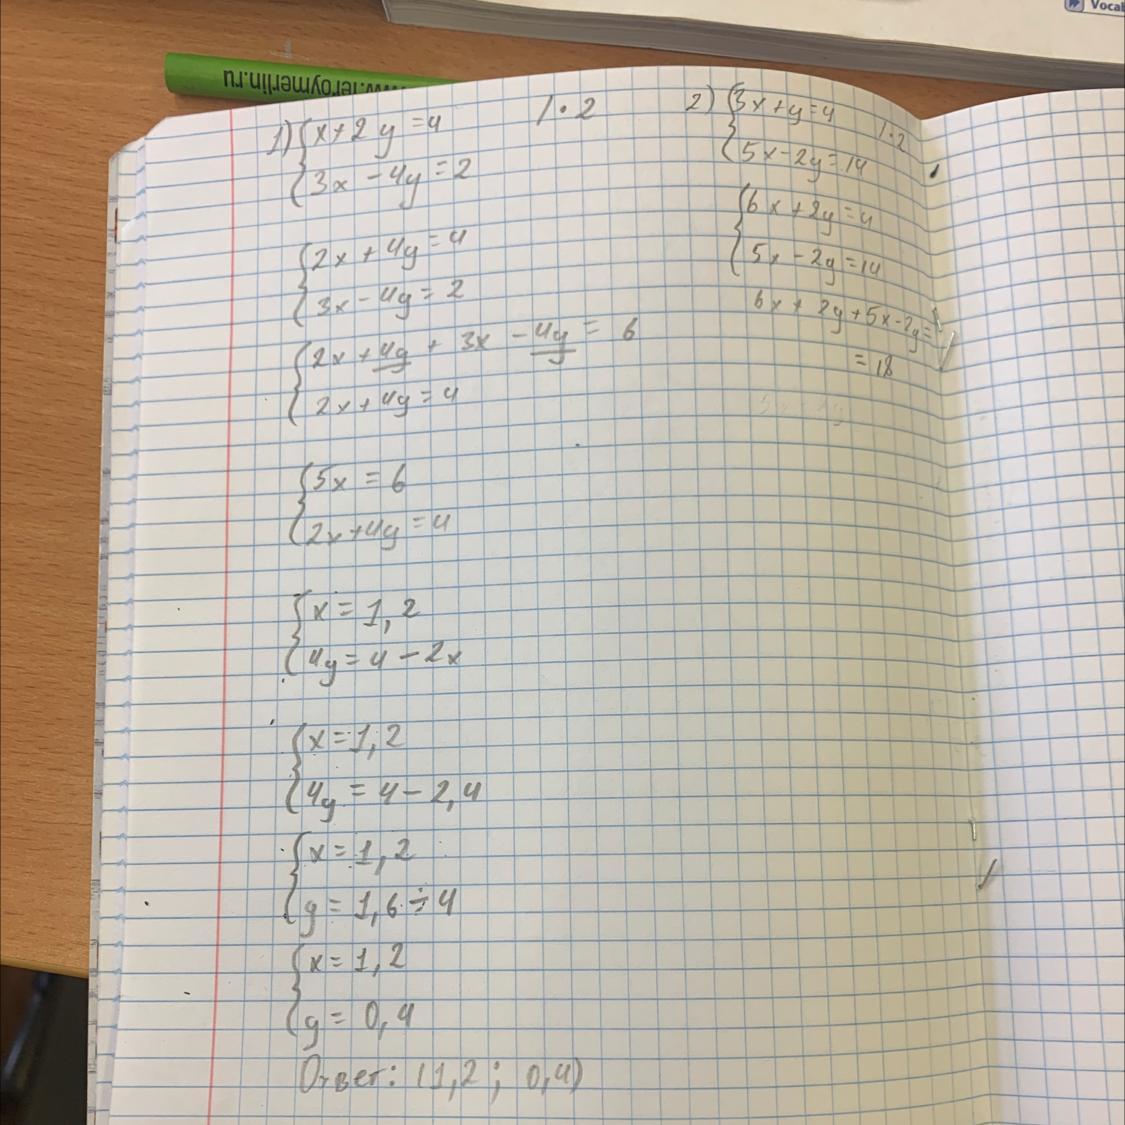 Vocab
www.leroymerlin.ru
1) { x + 2y = 4 | · 2
3x - 4y = 2
{ 2x + 4y = 4
3x - 4y = 2
{ 2x + 4y + 3x - 4y = 6
2x + 4y = 4
{ 5x = 6
2x + 4y = 4
{ x = 1,2
4y = 4 - 2x
{ x = 1,2
4y = 4 - 2,4
{ x = 1,2
y = 1,6 ÷ 4
{ x = 1,2
y = 0,4
Ответ: (1,2 ; 0,4)
2) { 3x + y = 4 | · 2
5x - 2y = 14
{ 6x + 2y = 4
5x - 2y = 14
6x + 2y + 5x - 2y =
= 18